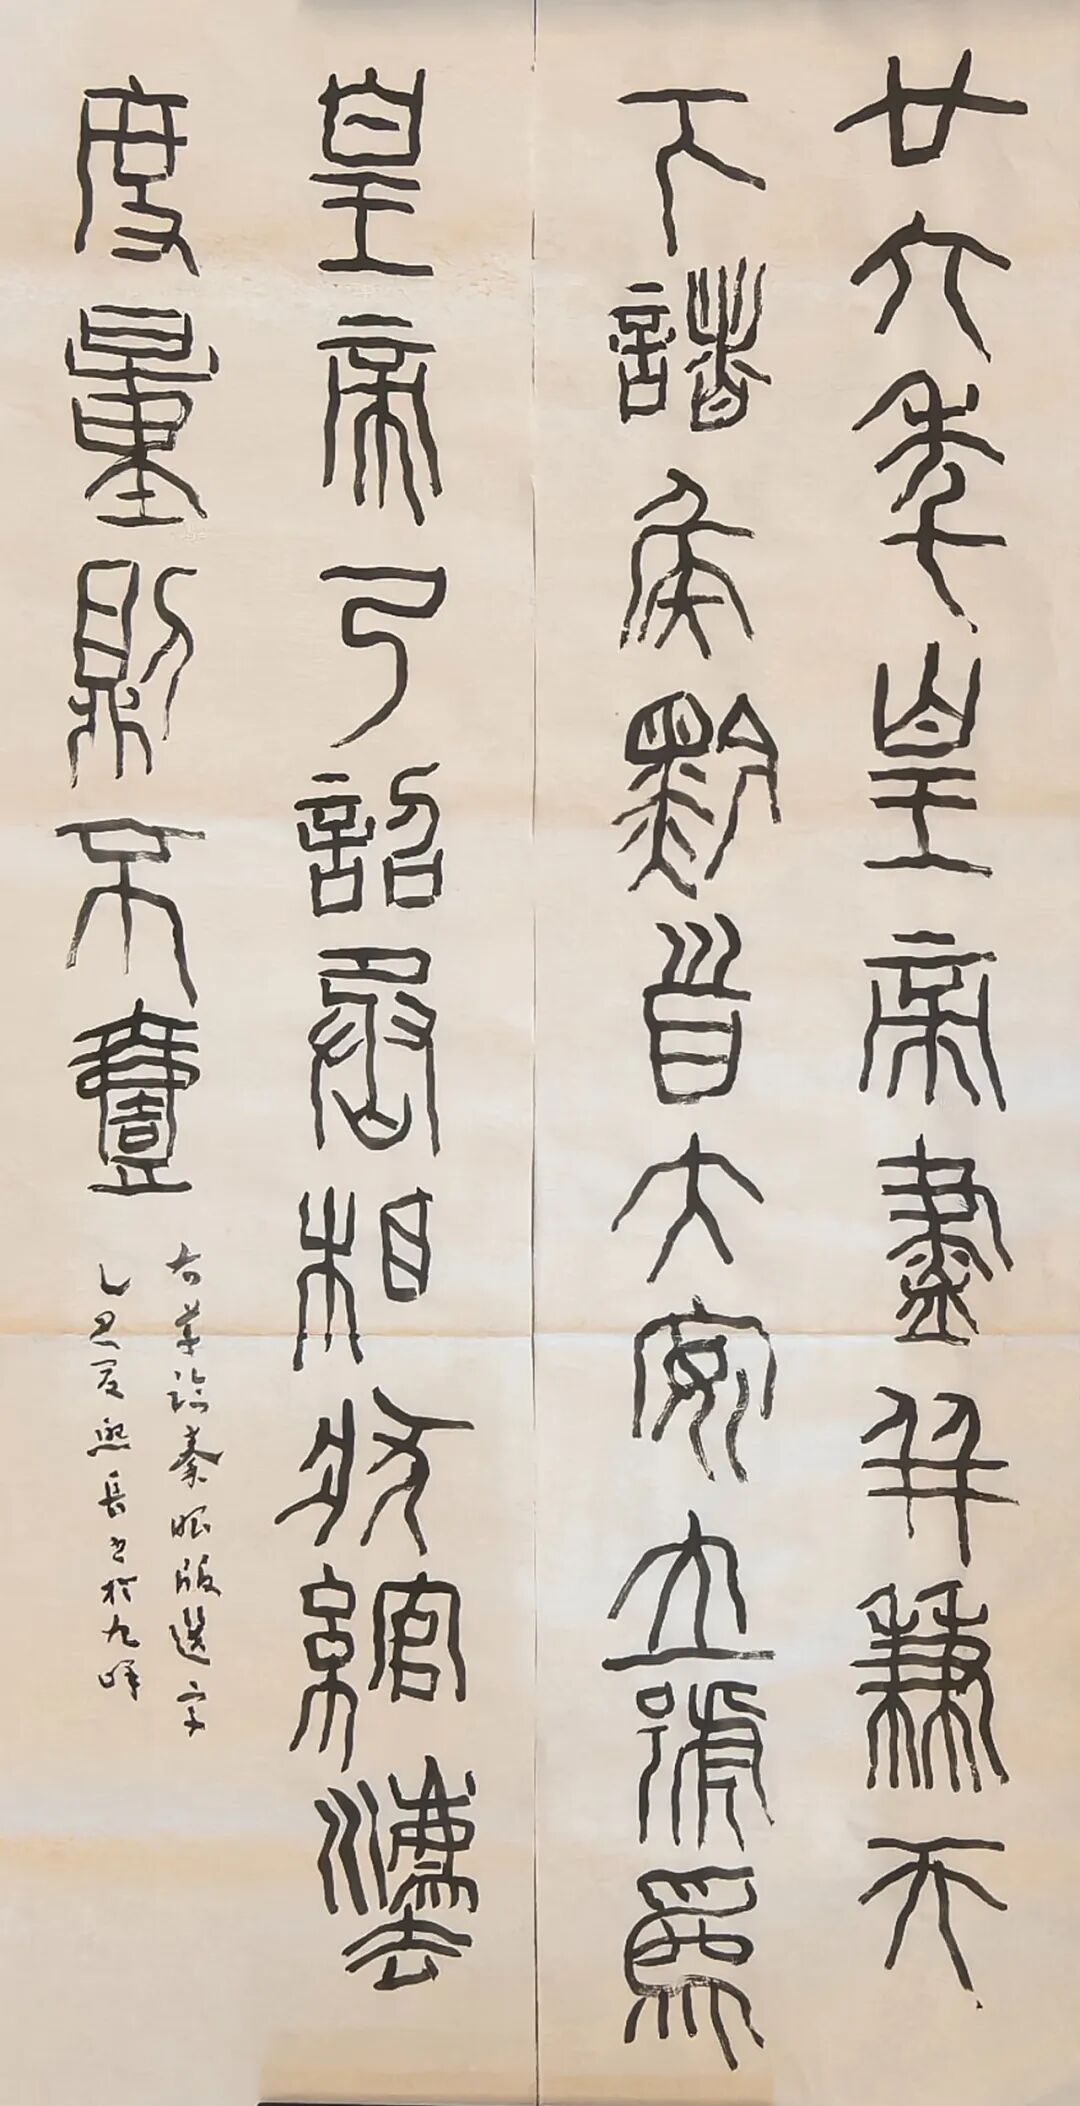 廿六年皇帝盡并兼天
下諸侯黔首大安立號爲
皇帝乃詔丞相狀綰灋
度量則不壹
右臨秦版選字
乙巳夏長書於九